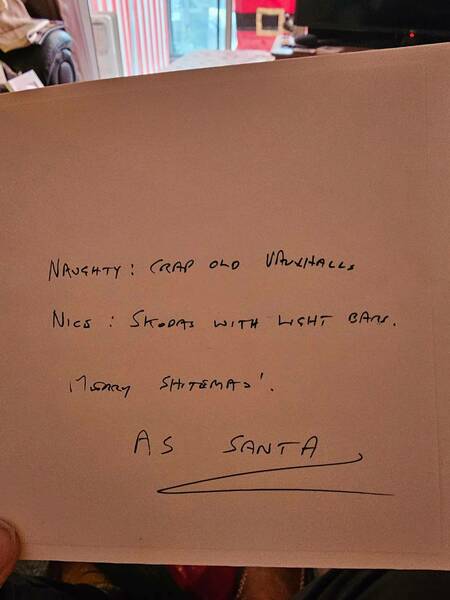 NAUGHTY: CRAP OLD VAUXHALLS
NICE: SKODAS WITH LIGHT BARS.
MERRY SHITEMAS'.
AS SANTA